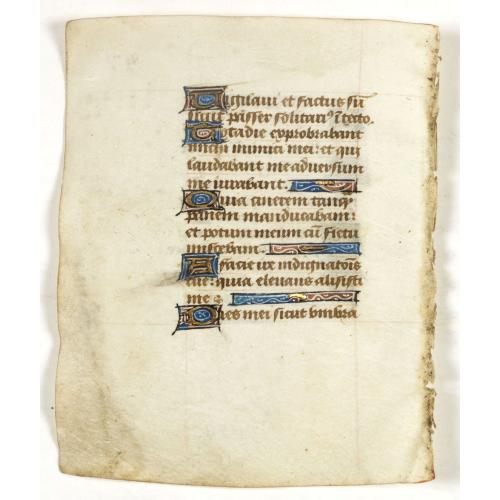 Vigilaui et factus sū
sicut passer solitariꝰ ī tecto.
Tota die exprobrabant
michi inimici mei: et qui
laudabant me aduersum
me iurabant.
Quia cinerem tanqꝫ
panem manducabam:
et potum meum cū fletu
miscebam.
A facie ire indignatōis
tue: quia eleuans alisisti
me.
Dies mei sicut vmbra